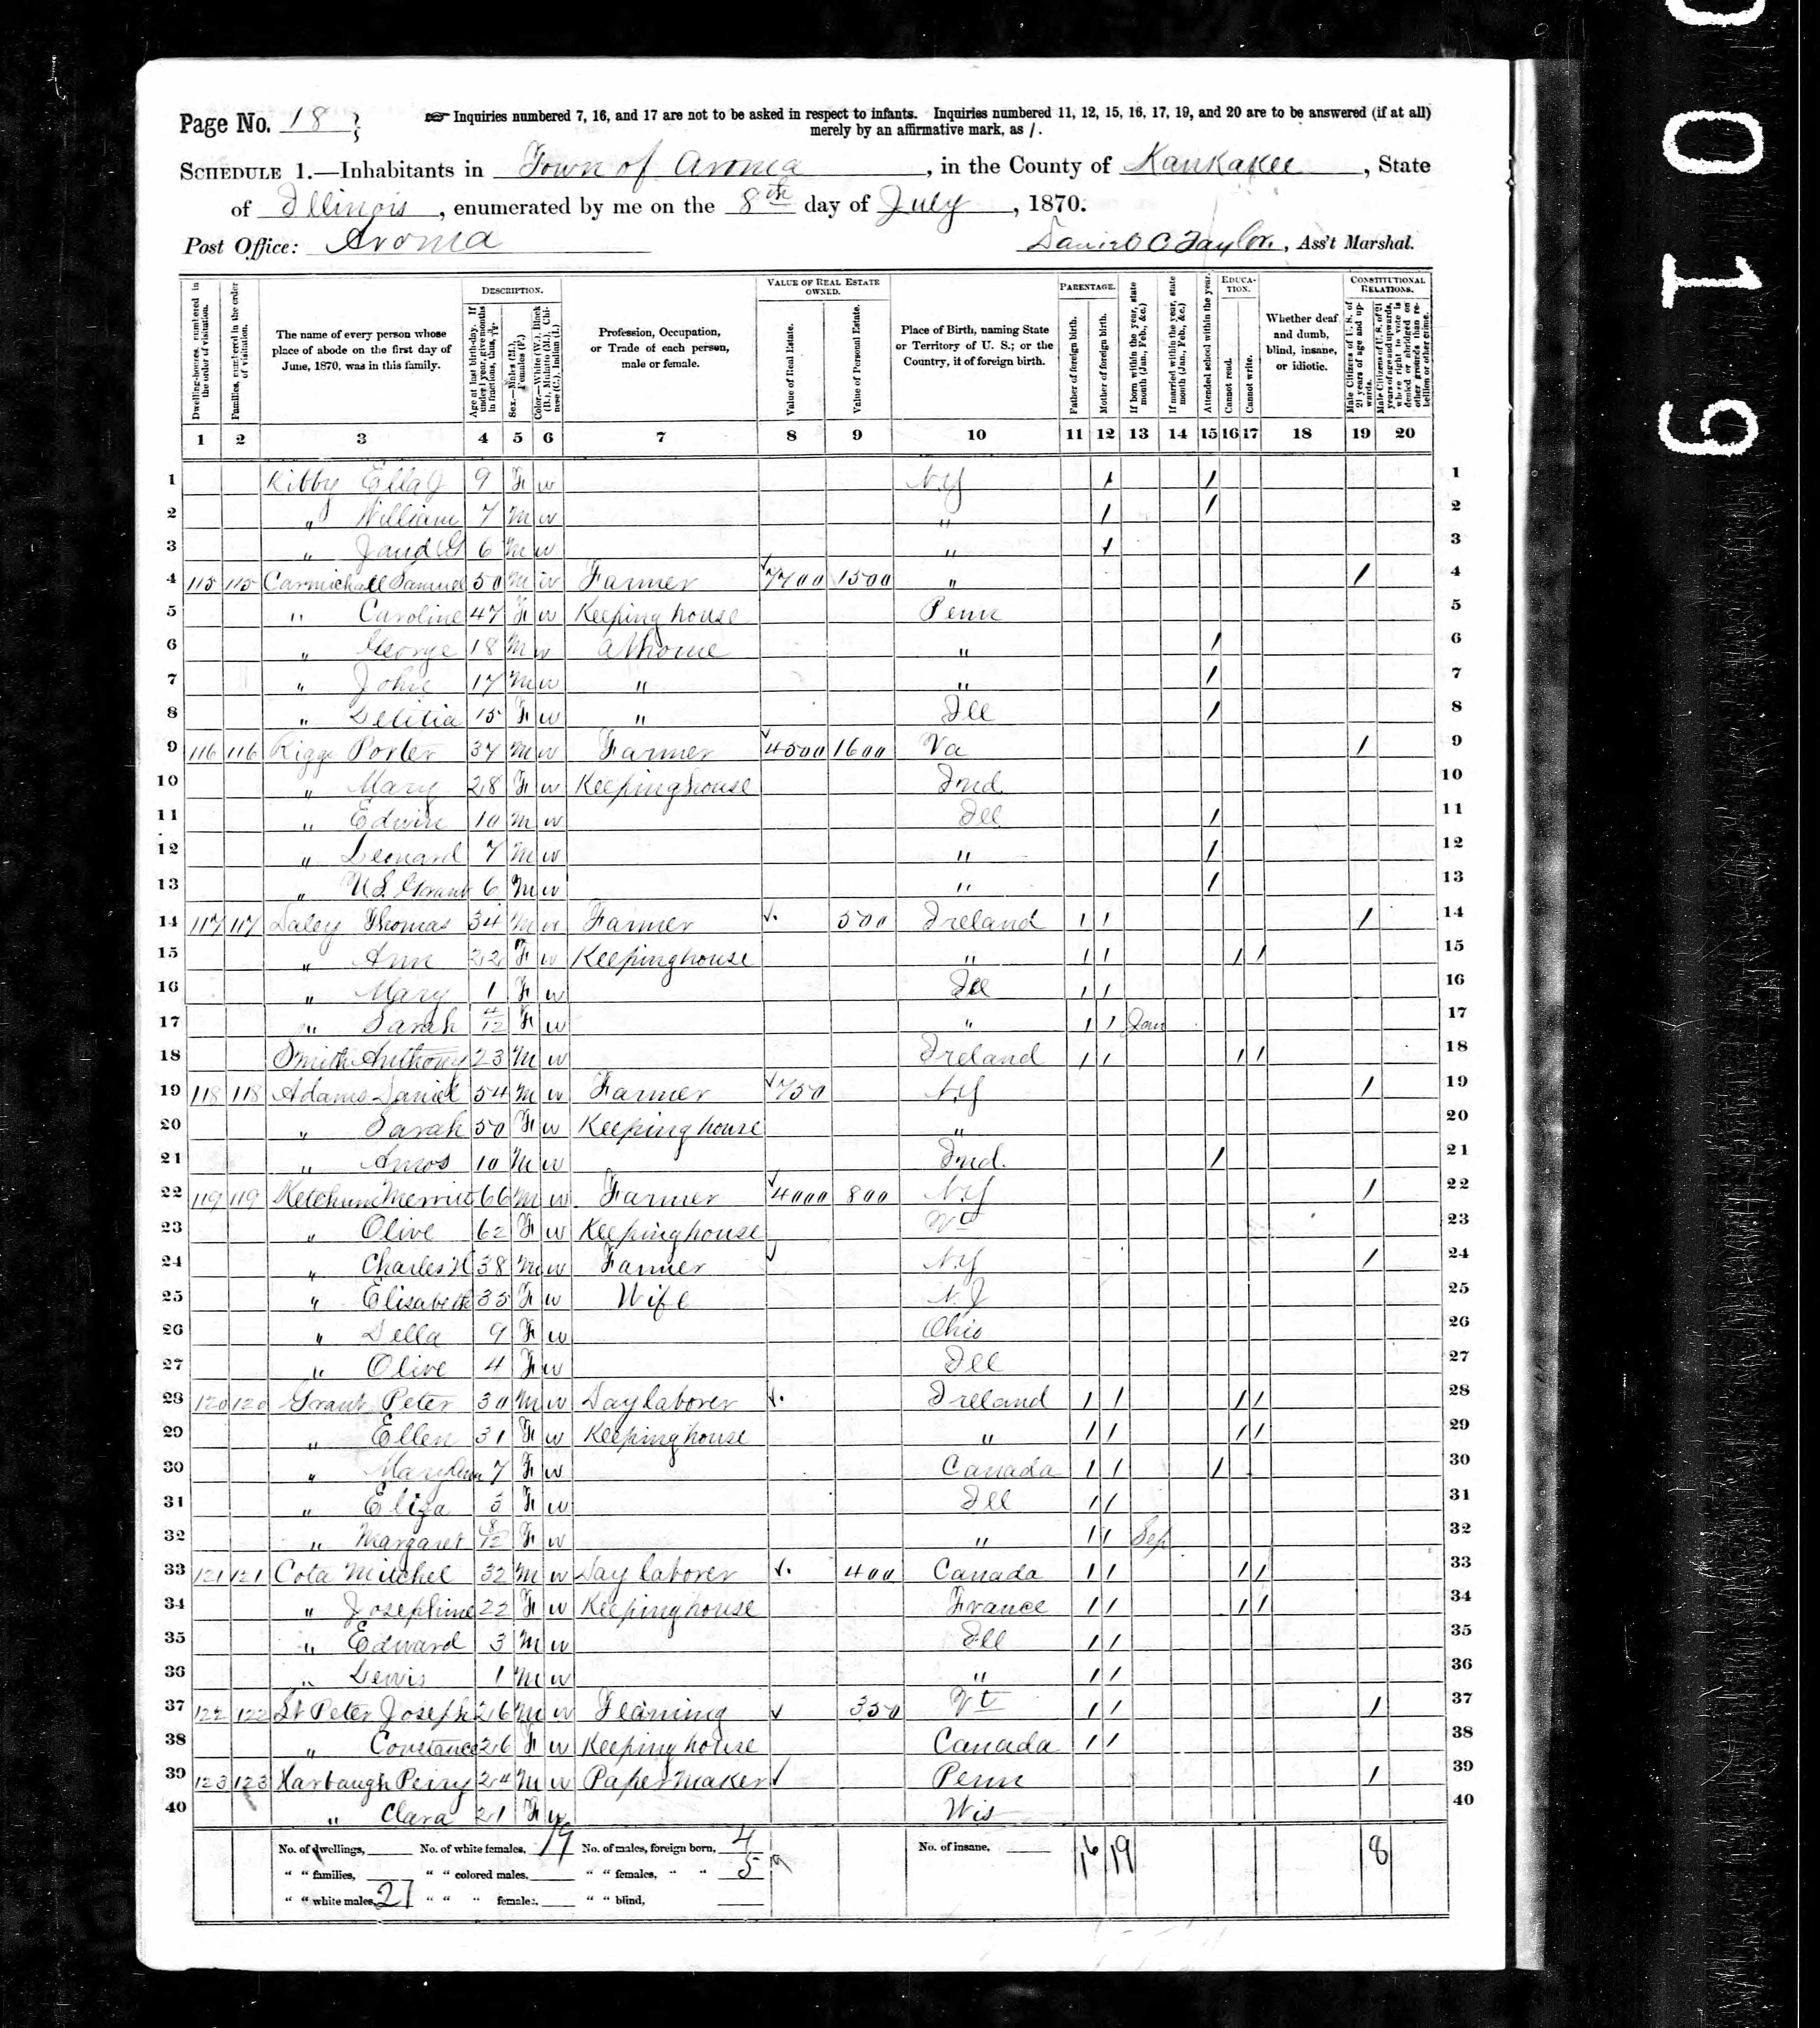 Page No. 18
☞ Inquiries numbered 7, 16, and 17 are not to be asked in respect to infants. Inquiries numbered 11, 12, 15, 16, 17, 19, and 20 are to be answered (if at all)
merely by an affirmative mark, as /.
SCHEDULE 1.—Inhabitants in Town of Aroma, in the County of Kankakee, State
of Illinois, enumerated by me on the 8th day of July, 1870.
Post Office: Aroma Daniel C Taylor, Ass't Marshal.
Dwelling-houses, numbered in the order of visitation.
Families, numbered in the order of visitation.
The name of every person whose place of abode on the first day of June, 1870, was in this family.
DESCRIPTION.
Age at last birth-day. If under 1 year, give months in fractions, thus,
Sex.—Males (M.), Females (F.)
Color.—White (W.), Black (B.), Mulatto (M.), Chinese (C.), Indian (I.)
Profession, Occupation, or Trade of each person, male or female.
VALUE OF REAL ESTATE OWNED.
Value of Real Estate.
Value of Personal Estate.
Place of Birth, naming State or Territory of U. S.; or the Country, if of foreign birth.
PARENTAGE.
Father of foreign birth.
Mother of foreign birth.
If born within the year, state month (Jan., Feb., &c.)
If married within the year, state month (Jan., Feb., &c.)
Attended school within the year.
EDUCATION.
Cannot read.
Cannot write.
Whether deaf and dumb, blind, insane, or idiotic.
CONSTITUTIONAL RELATIONS.
Male Citizens of U. S. of 21 years of age and upwards.
Male Citizens of U. S. of 21 years of age and upwards, whose right to vote is denied or abridged on other grounds than rebellion or other crime.
1 2 3 4 5 6 7 8 9 10 11 12 13 14 15 16 17 18 19 20
1 Kibby Ella J 9 F w N.Y / / 1
2 " William 7 M w " / / 2
3 " 6 M w " / 3
4 115 115 Carmichall Samuel 50 M w Farmer 7700 1500 " / 4
5 " Caroline 47 F w Keeping house Penn 5
6 " George 18 M w At home " / 6
7 " John 17 M w " " / 7
8 " Letitia 15 F w " Ill / 8
9 116 116 Rigge Porter 37 M w Farmer 4500 1600 Va / 9
10 " Mary 28 F w Keeping house Ind 10
11 " Edwin 10 M w Ill / 11
12 " Leonard 7 M w " / 12
13 " U S. Grant 6 M w " / 13
14 117 117 Daley Thomas 34 M w Farmer 500 Ireland / / / 14
15 " Ann 22 F w Keeping house " / / / / 15
16 " Mary 1 F w Ill / / 16
17 " Sarah 4/12 F w " / / Jan 17
18 Smith Anthony 23 M w Ireland / / / / 18
19 118 118 Adams Daniel 54 M w Farmer 750 N.Y / 19
20 " Sarah 50 F w Keeping house " 20
21 " Amos 10 M w Ind. / 21
22 119 119 Ketchum Merrit 66 M w Farmer 4000 800 N.Y / 22
23 " Olive 62 F w Keeping house 23
24 " Charles H 38 M w Farmer N.Y / 24
25 " Elisabeth 35 F w Wife N.J 25
26 " Della 9 F w Ohio 26
27 " Olive 4 F w Ill 27
28 120 120 Grant Peter 30 M w Day laborer Ireland / / / / 28
29 " Ellen 31 F w Keeping house " / / / / 29
30 " Mary Ann 7 F w Canada / / / 30
31 " Eliza 3 F w Ill / / 31
32 " Margaret 8/12 F w " / / Sep 32
33 121 121 Cota Mitchel 32 M w Day laborer 400 Canada / / / / 33
34 " Josephine 22 F w Keeping house France / / / / 34
35 " Edward 3 M w Ill / / 35
36 " Lewis 1 M w " / / 36
37 122 122 St Peter Joseph 26 M w 350 Vt / / / 37
38 " Constance 26 F w Keeping house Canada / / 38
39 123 123 Harbaugh Perry M w Paper Maker Penn / 39
40 " Clara 21 F w Wis 40
No. of dwellings, No. of white females, 19 No. of males, foreign born, 4 No. of insane, 16 19 8
" " families, " " colored males, " " females, " " 5
" " white males, 21 " " " females, " " blind,
0019